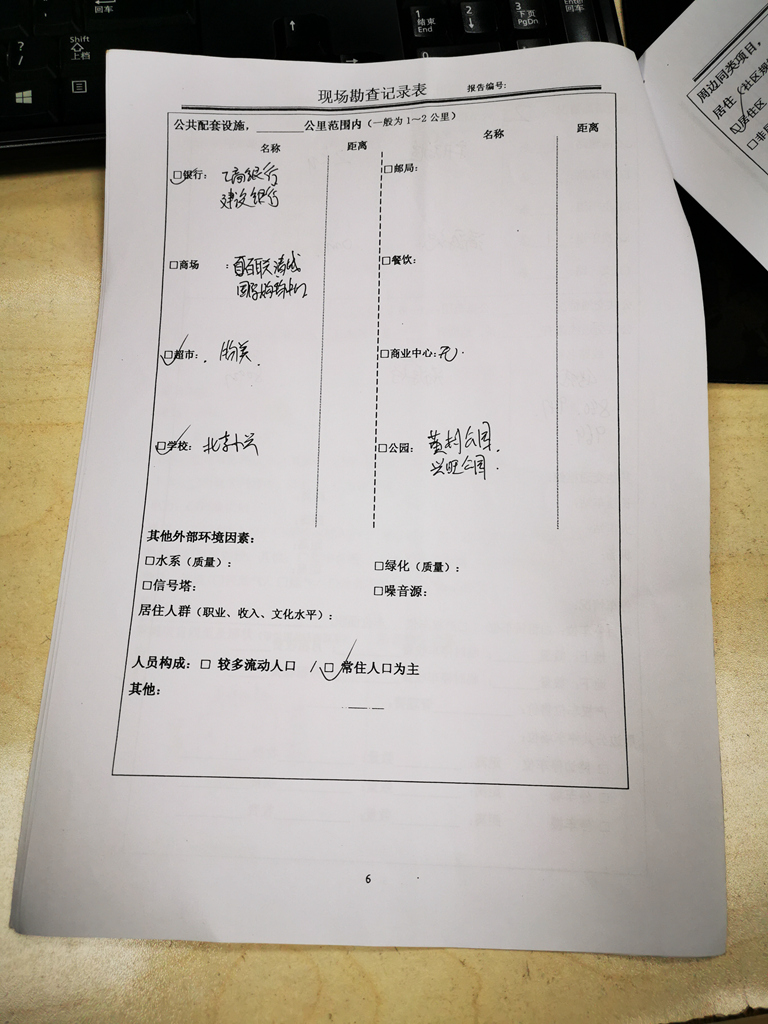 现场勘查记录表 报告编号:
公共配套设施，______公里范围内（一般为 1～2 公里）
名称 距离 名称 距离
☑银行： 工商银行 □邮局：
建设银行
□商场 ： □餐饮：
☑超市： 物美 □商业中心：无
☑学校： □公园： 黄村公园
兴旺公园
其他外部环境因素：
□水系（质量）： □绿化（质量）：
□信号塔： □噪音源：
居住人群（职业、收入、文化水平）：
人员构成：□ 较多流动人口 /☑ 常住人口为主
其他：
6
周边同类项目，
居住（社区规
☑居住区
□非
Shift
上档
回车
?
/
1
结束
End
2
3
下页
PgDn
Enter
回车
0